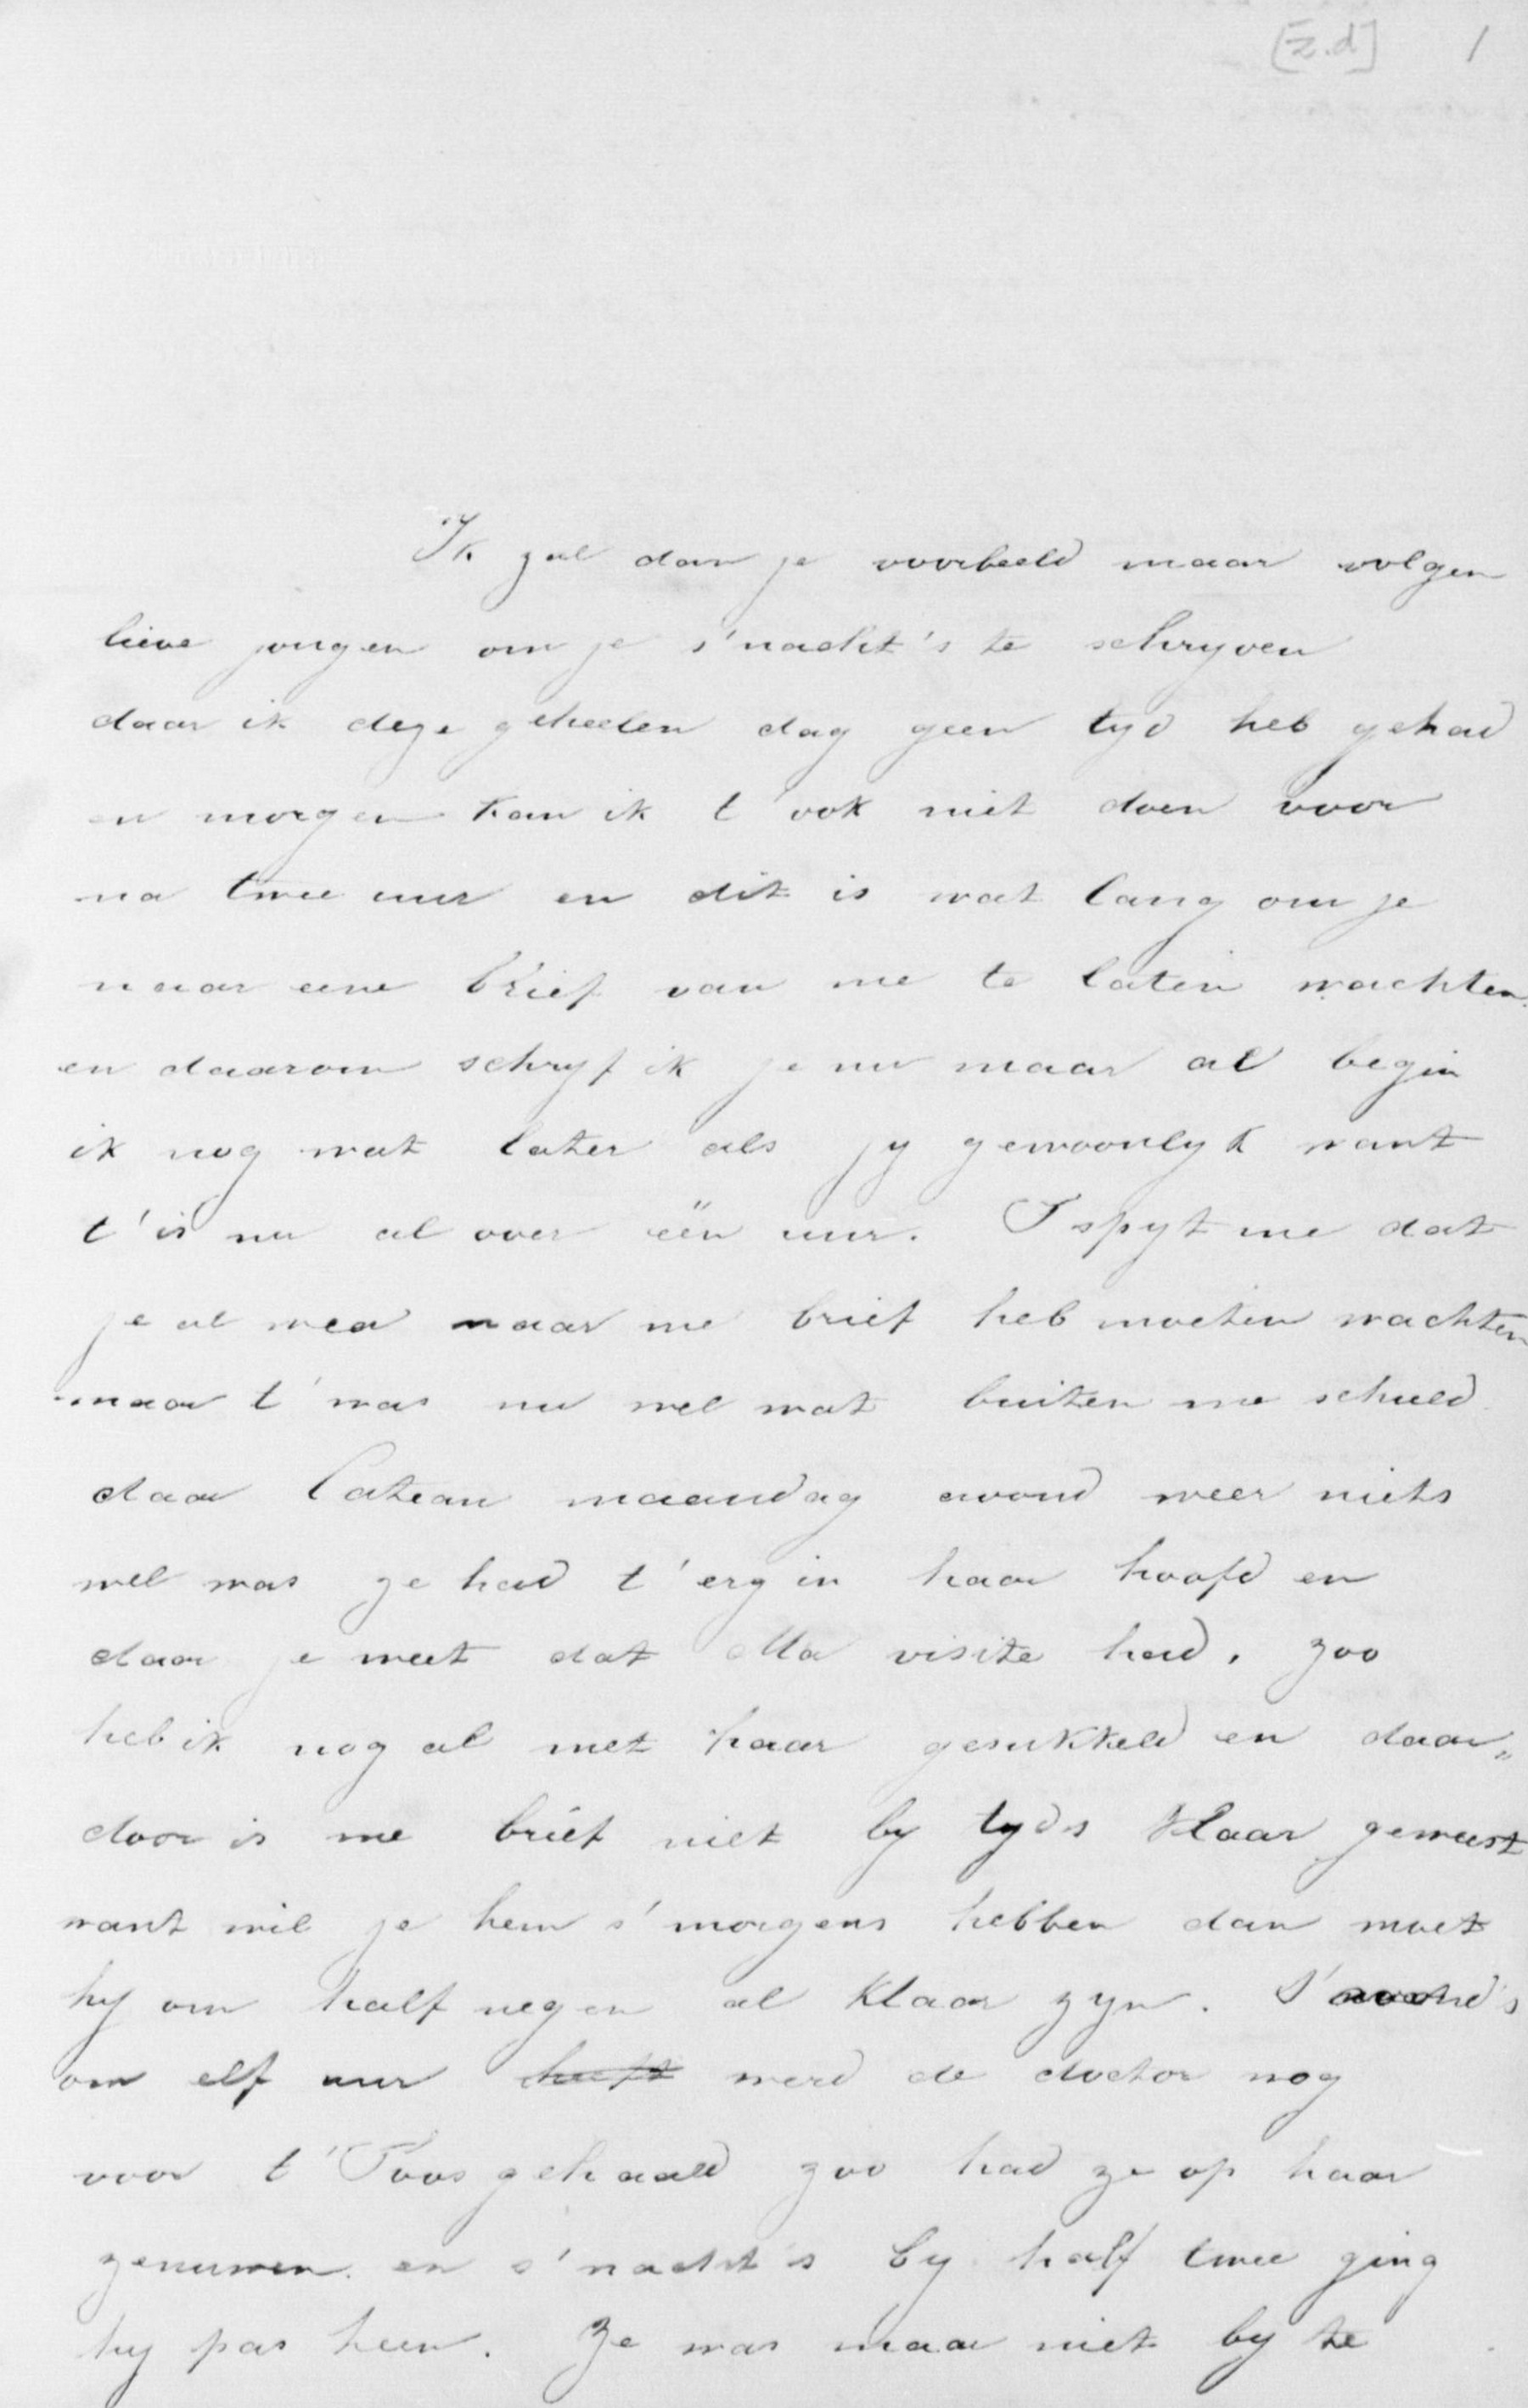 [z.d] 1
Ik zal dan je voorbeeld maar volgen
lieve jongen om je s'nacht's te schryven
daar ik deze geheelen dag geen tyd heb gehad
en morgen kan ik t ook niet doen voor
na twee uur en dit is wat lang om je
naar eene brief van me te laten wachten.
en daarom schryf ik je nu maar al begin
ik nog wat later als jy gewoonlyk want
t'is nu al over één uur. T spyt me dat
je al weer naar me brief heb moeten wachten
maar t'was nu wel wat buiten me schuld
daar Cateau maandag avond weer niets
wel was ze had t'erg in haar hoofd en
daar je weet dat Ma visite had. zoo
heb ik nog al met haar gesukkeld en daar„
door is me brief niet by tyds klaar geweest
want wil je hem s'morgens hebben dan moet
hy om half negen al klaar zyn. S'avond's
om elf uur heeft werd de doctor nog
voor t'Toos gehaald zoo had ze op haar
zenuwen en s'nacht's by half twee ging
hy pas heen. Ze was maar niet by te